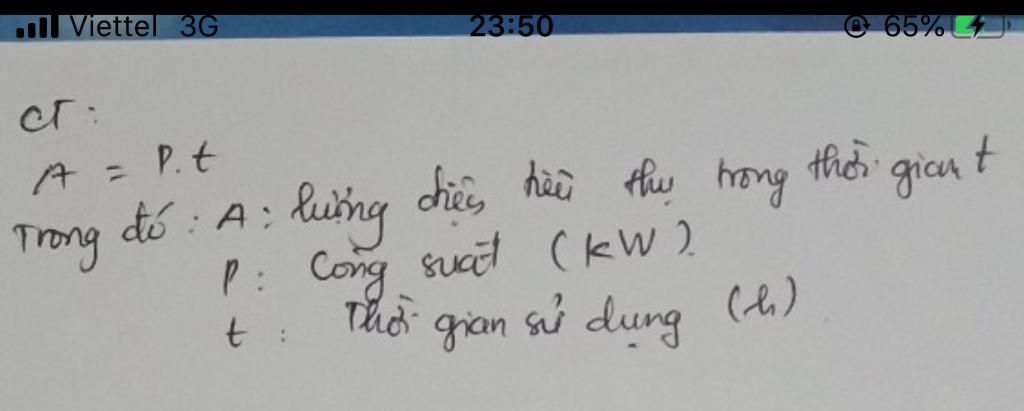 Viettel 3G 23:50 65%
CT:
A = P.t
Trong đó: A: lượng điện tiêu thụ trong thời gian t
P: Công suất (kW).
t: Thời gian sử dụng (h)